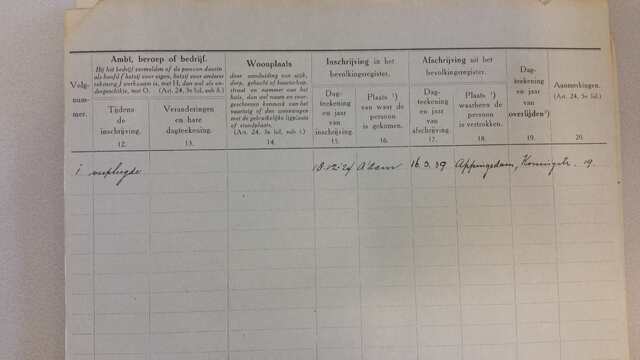 Ambt, beroep of bedrijf.
Bij het bedrijf vermelden of de persoon daarin
als hoofd (hetzij voor eigen, hetzij voor andere
rekening) werkzaam is, met H, dan wel als on-
dergeschikte, met O. (Art. 24, 3e lid, sub 8.)
Woonplaats
door aanduiding van wijk,
dorp, gehucht of buurtschap,
straat en nummer van het
huis, dan wel naam en voor-
geschreven kenmerk van het
vaartuig of den woonwagen
met de gebruikelijke ligplaats
of standplaats.
(Art. 24, 3e lid, sub 1.)
Inschrijving in het
bevolkingsregister.
Afschrijving uit het
bevolkingsregister.
Volg-
num-
mer.
Tijdens
de
inschrijving.
Veranderingen
en hare
dagteekening.
Dag-
teekening
en jaar
van
inschrijving.
Plaats ¹)
van waar de
persoon
is gekomen.
Dag-
teekening
en jaar
van
afschrijving
Plaats ¹)
waarheen de
persoon
is vertrokken.
Dag-
teekening
en jaar
van
overlijden²)
Aanmerkingen.
(Art. 24, 5e lid.)
12. 13. 14. 15. 16. 17. 18. 19. 20.
1 verpleegde 18.12.24 A'dam 16.3.39 Appingedam, Koningstr. 19.